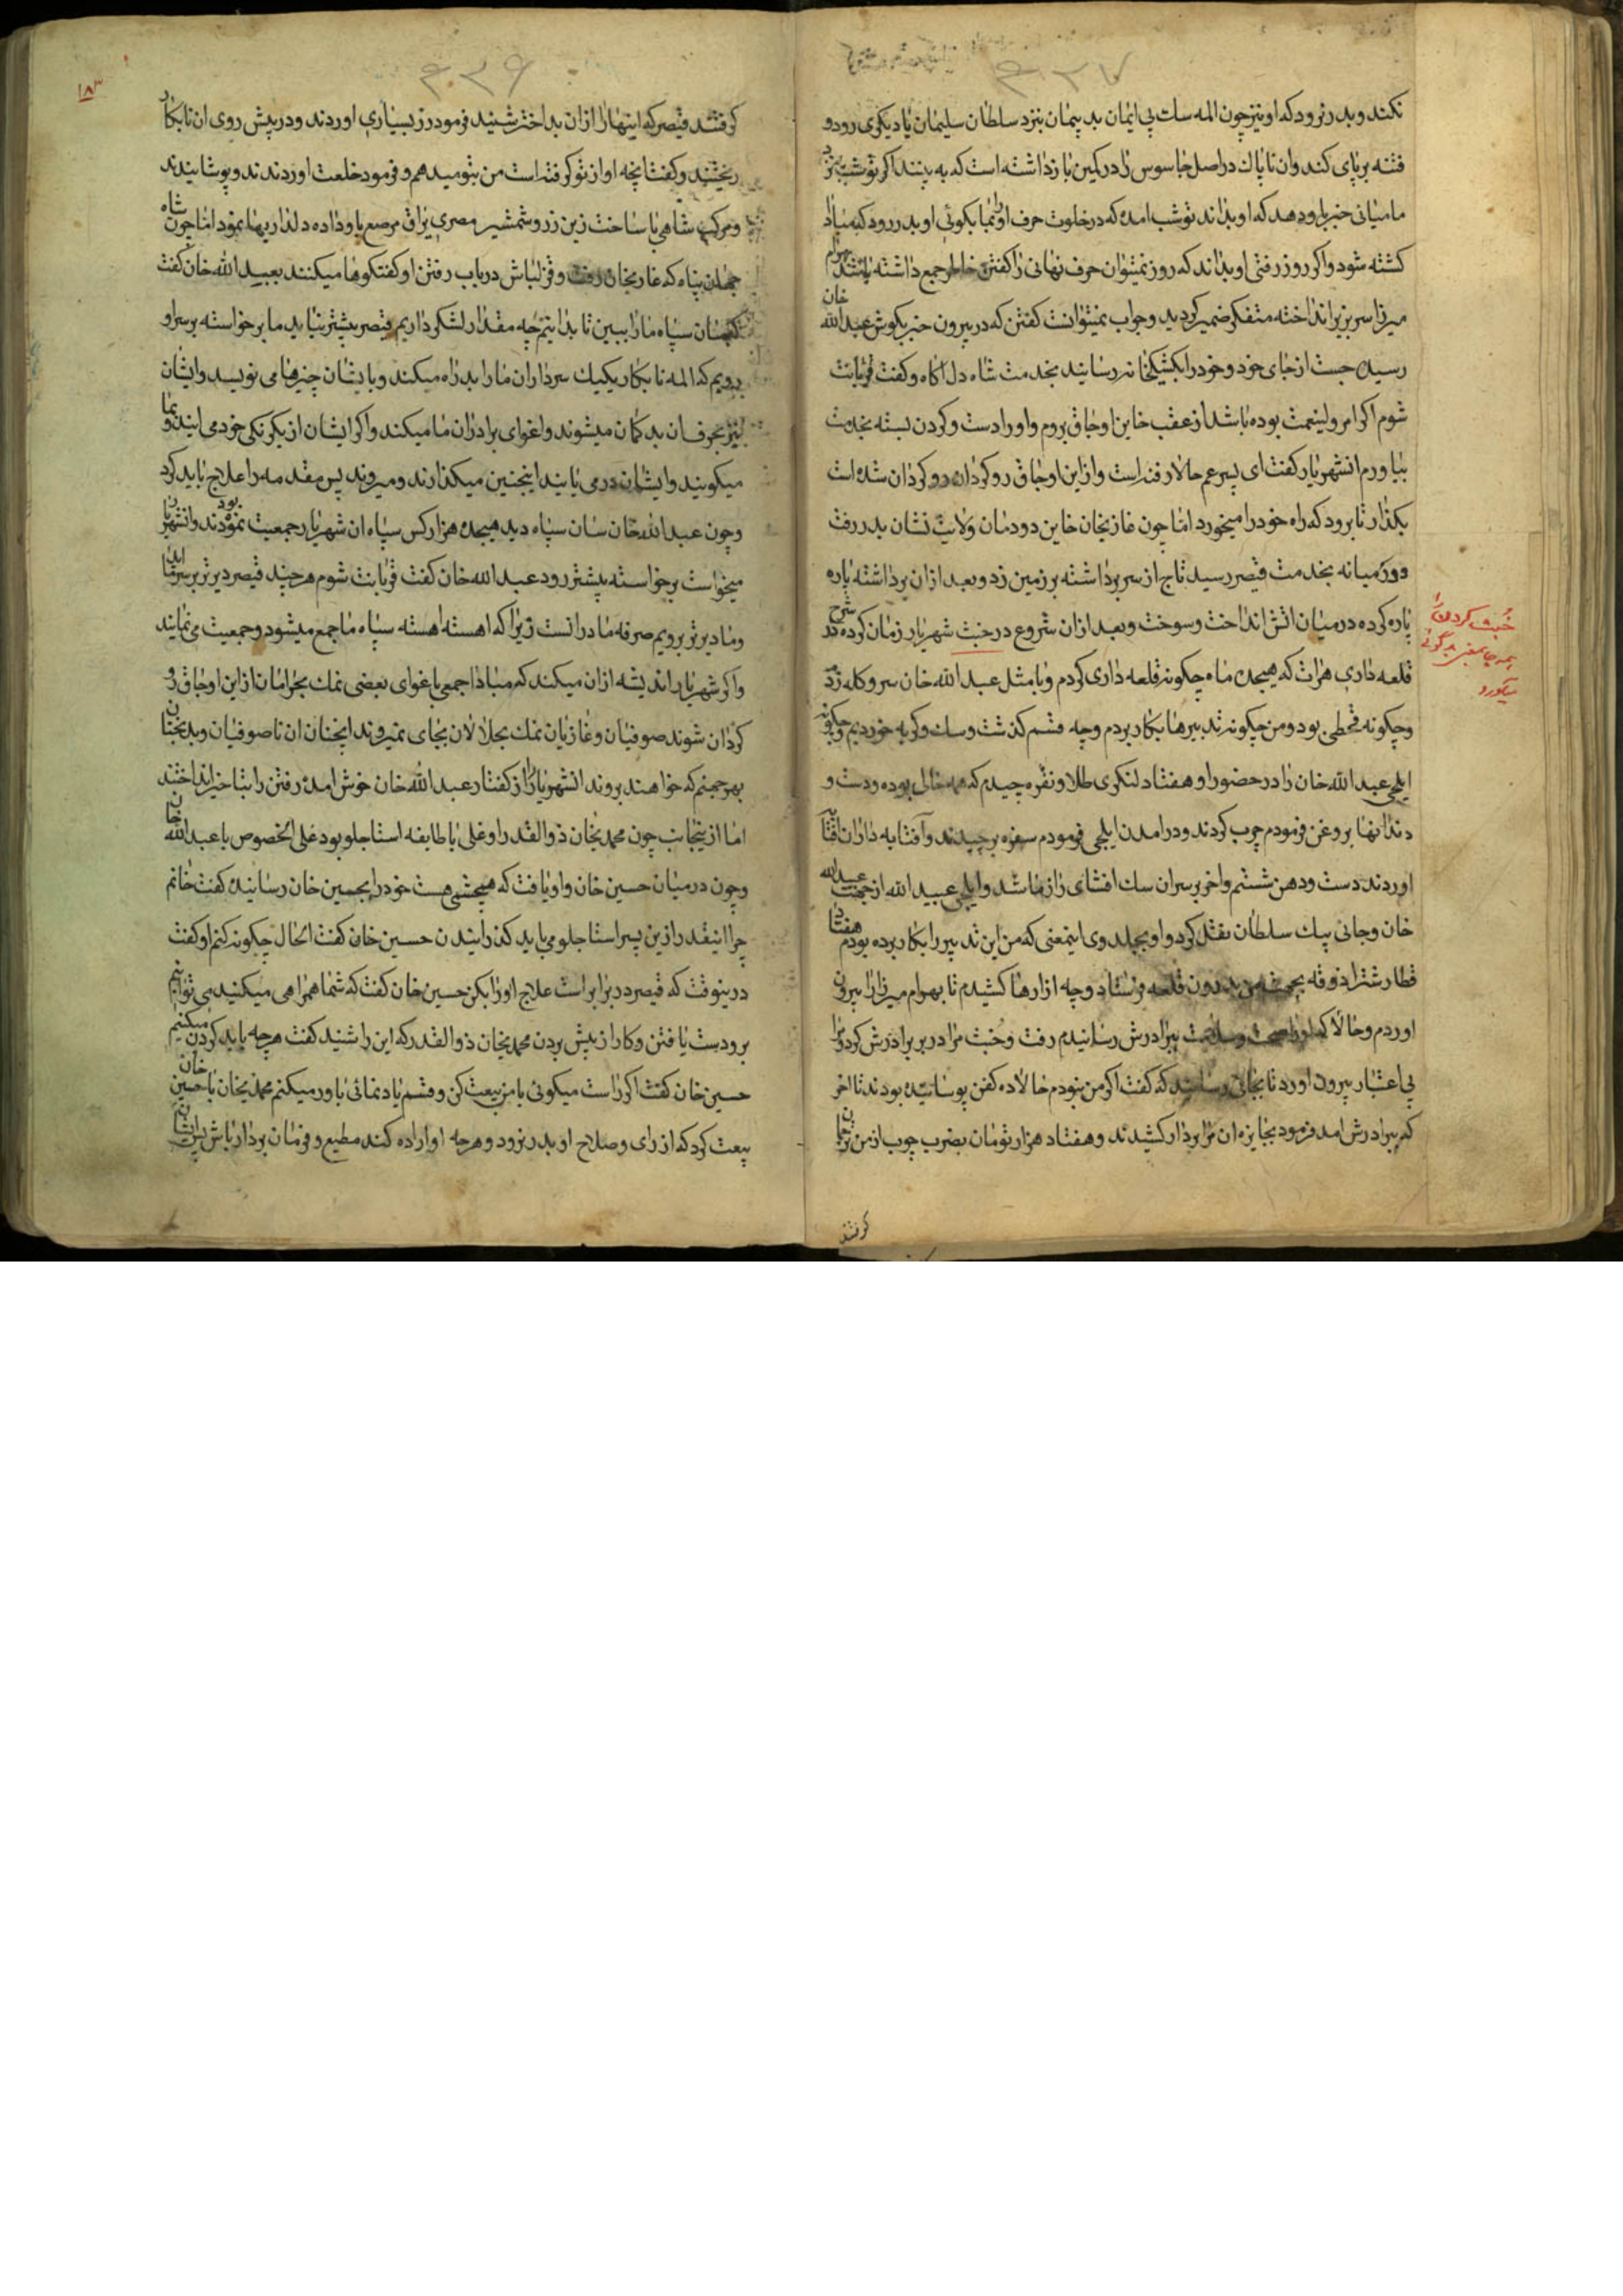 نکند و بدر نرود که او نیز چون المه سات بی ایمان بد پیمان بنزد سلطان سلیمان یا دیکری رود و
فتنه برپای کند و ان ناپاک در اصل جاسوس را در کمین بازداشته است که به بینند اکر تو شب بنزد
ما میائی خبر باو دهد که او بداند تو شب امده که در خلوت حرف او را بما بکوئی او بدر رود که مبادا
کشته شود و اکر روز رفتی او بداند که روز نمیتوان حرف نهانی را کفتن خاطر جمع داشته باشد بهرام
میرزا سر بزیر انداخته متفکر ضمیر کردید و جواب نمیتوانست کفتن که در بیرون خبر بکوش عبدالله خان
رسید جست از جای خود و خود را بکشیکخانه رسانید بخدمت شاه دل اکاه و کفت قربانت
شوم اکر امر ولینعمت بوده باشد از عقب خاین اوجاق بروم و او را دست و کردن بسته بخدمت
بیاورم انشهریار کفت ای پسر عم حالا رفته است و از این اوجاق رو کردان رو کردان شده است
بکذار تا برود که راه خود را میخورد اما چون غازیخان خاین دودمان ولایت نشان بدر رفت
و در میانه بخدمت قیصر رسید تاج از سر برداشته بر زمین زد و بعد ازان برداشته پاره
پاره کرده در میان اتش انداخت و سوخت و بعد ازان شروع در خبث شهریار زمان کرده شرح در
قلعه داری هرات که هیجده ماه چکونه قلعه داری کردم و با مثل عبدالله خان سر و کله زدم
و چکونه قحطی بود و من چکونه تدبیرها بکار بردم و چه قسم کذشت و سک و کربه خوردیم و چکونه
ایلچی عبدالله خان را در حضور او هفتاد لنکری طلا و نقره چیدم که همه خالی بوده و دست و
دندانها بروغن فرمودم چرب کردند و در امدن ایلچی فرمودم سفره برچیدند و آفتابه داران آفتابه
اوردند دست و دهن شستم و اخر بر سر ان سک افشای راز ما شد و ایلچی عبیدالله از جهت عبیدالله
خان و جانی بیک سلطان نقل کرد و او بجلدوی اینمعنی که من این تدبیر را بکار برده بودم هفتاد
قطار شتر اذوقه بجهت من بدرون قلعه فرستاد و چه ازارها کشیدم تا بهرام میرزا را بیرون
اوردم و حالا که او را صحت و سلامت ببرادرش رسانیدم رفت و خبث مرا در بر برادرش کرد و مرا
بی اعتبار بیرون اورد تا بجائی رسانید که کفت اکر من نبودم حالا ده کفن پوسانیده بودند تا اخر
که ببرادرش امد فرمود بجایزه ان مرا بردار کشیدند و هفتاد هزار تومان بضرب چوب از من ترجمان
کرفتند
خبث کردن
۴۳۷
۴۳۶
۱۸۳
کرفتند قیصر که اینها را از ان بد اختر شنید فرمود زر بسیاری اوردند و در پیش روی ان نابکار
ریختند و کفت انچه او از تو کرفته است من بتو میدهم و فرمود خلعت اوردند و پوشانیدند
و مرکب شاهی با ساخت زین زر و شمشیر مصری یراق مرصع باو داده دلداریها نمود اما چون شاه
جهان پناه که غازیخان رفت و قزلباش در باب رفتن او کفتکوها میکنند بعبیدالله خان کفت
که سان سپاه ما را ببین تا بدانیم چه مقدار لشکر داریم قیصر پیشتر نیاید ما برخواسته بر سر او
برویم که المه نابکار یکیک سرداران ما را بد راه میکند و بایشان چیزها می نویسد و ایشان
نیز بحرف ان بد کمان میشوند و اغوای برادران ما میکند و اکر ایشان از یکرنکی خود می ایند و بما
میکویند و ایشان در می یابند اینچنین میکذارند و میروند پس مقدمه را علاج باید کرد
و چون عبدالله خان سان سپاه دید هیجده هزار کس سپاه ان شهریار جمعیت نموده بودند و انشهریار
میخواست برخواسته پیشتر رود عبدالله خان کفت قربانت شوم هرچند قیصر دیرتر بر سر ما اید
و ما دیرتر برویم صرفه ما درانست زیرا که اهسته اهسته سپاه ما جمع میشود و جمعیت می نمایند
و اکر شهریار اندیشه ازان میکند که مبادا جمعی باغوای بعضی نمک بحرامان از این اوجاق رو
کردان شوند صوفیان و غازیان نمک بحلالان بجای نمیروند انچنان ان ناصوفیان و بدبختان
بهر جهنم که خواهند بروند انشهریار را از کفتار عبدالله خان خوش امده رفتن را بتاخیر انداختند
اما از اینجانب چون محمدیخان ذوالقدر اوغلی با طایفه استاجلو بود علی الخصوص با عبدالله خان
و چون در میان حسین خان و او یافت که هیچشمی هست خود را بحسین خان رسانیده کفت خانم
چرا اینقدر از این پسر استاجلو می باید کذرانیدن حسین خان کفت الحال چکونه کنم او کفت
درینوقت که قیصر در برابر است علاج او را بکن حسین خان کفت که شما همراهی میکنید می توانیم
برو دست یافتن و کار از پیش بردن محمدیخان ذوالقدر که این را شنید کفت هرچه باید کردن میکنیم
حسین خان کفت اکر راست میکوئی با من بیعت کن و قسم یاد نمائی باور میکنم محمدیخان با حسین خان
بیعت کرد که از رای و صلاح او بدر نرود و هرچه او اراده کند مطیع و فرمان بردار باش پس ایشان